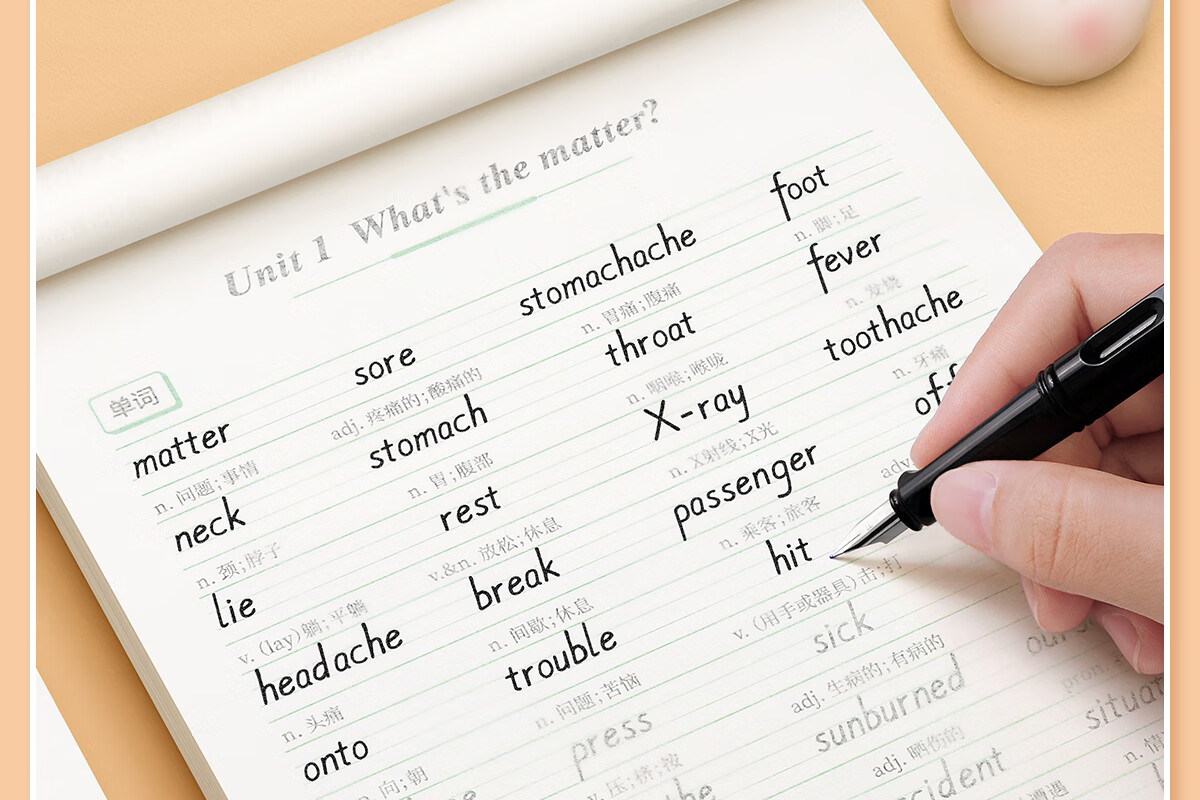 Unit 1 What's the matter?
单词
matter sore stomachache foot
n. 问题;事情 adj. 疼痛的;酸痛的 n. 胃痛;腹痛 n. 脚;足
neck stomach throat fever
n. 颈;脖子 n. 胃;腹部 n. 咽喉;喉咙 n. 发烧
lie rest X-ray toothache
v. (lay)躺;平躺 v.&n. 放松;休息 n. X射线;X光 n. 牙痛
headache break passenger off
n. 头痛 n. 间歇;休息 n. 乘客;旅客 adv
onto trouble hit
向;朝 n. 问题;苦恼 v. (用手或器具)击;打
press sick
v. 压;挤;按 adj. 生病的;有病的 pron.
sunburned situat
adj. 晒伤的 n. 情
cident
遭遇